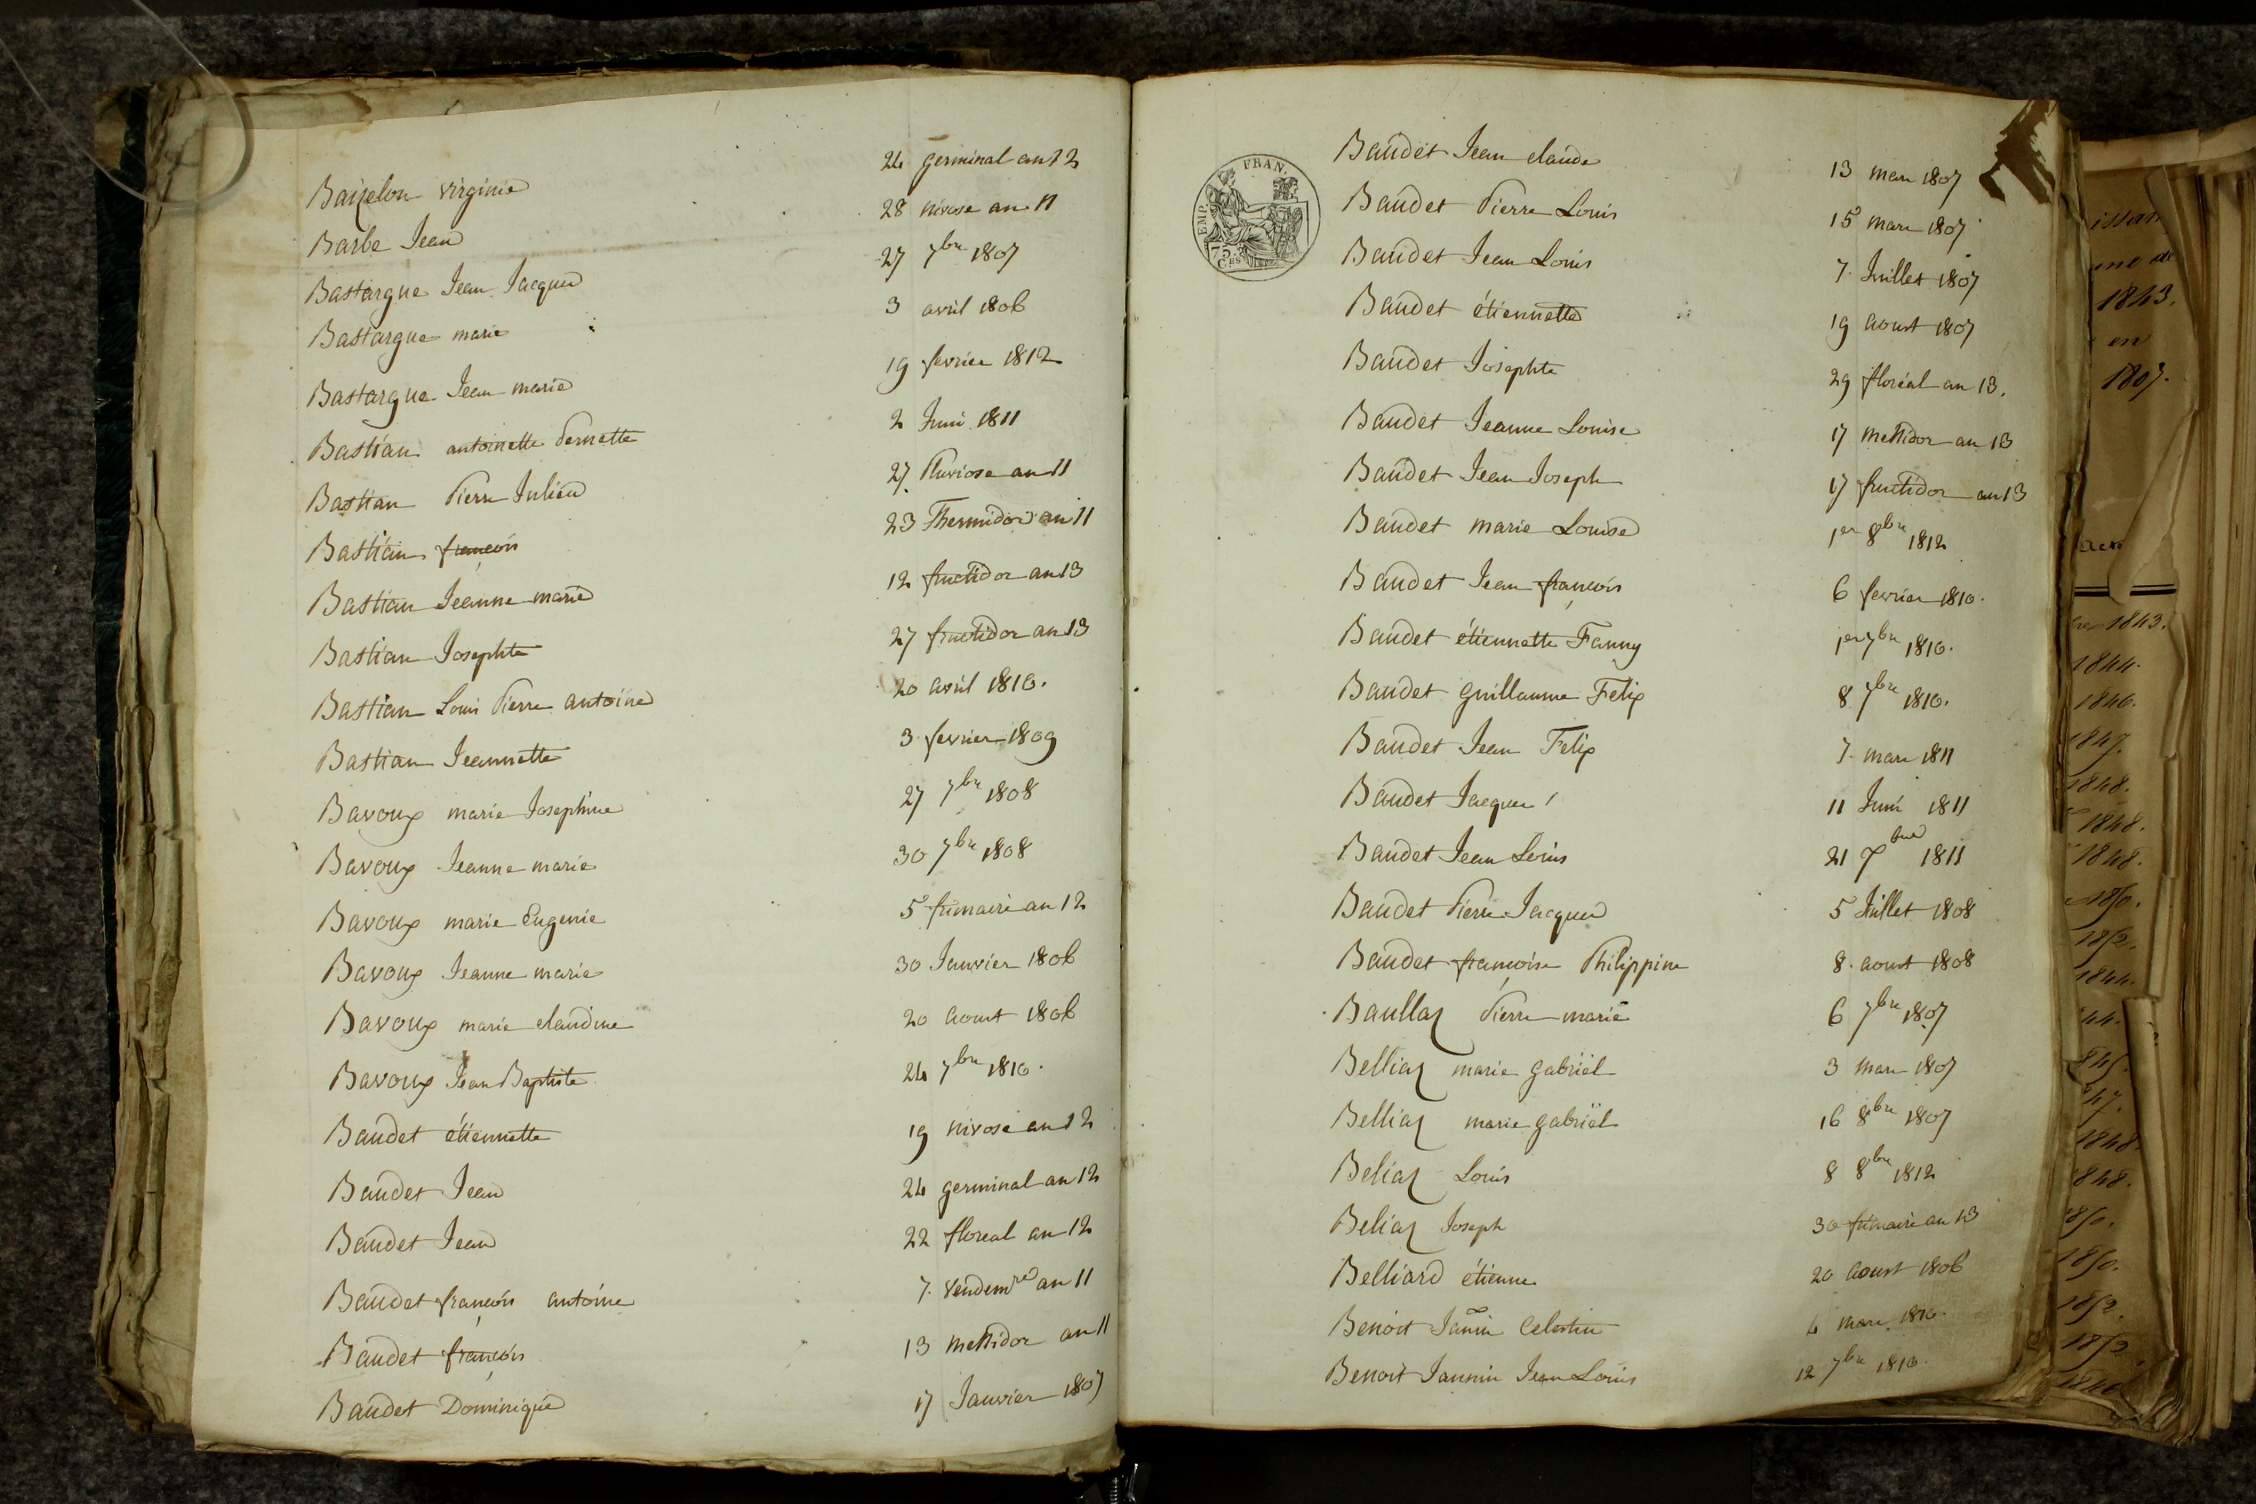 Baijelon virginie 24 germinal an 12
Barbe Jean 28 nivose an 11
Bastargue Jean Jacques 27 7bre 1807
Bastargue marie 3 avril 1806
Bastargue Jean marie 19 fevrier 1812
Bastian antoinette Pernette 2 Juin 1811
Bastian Pierre Julien 27 Pluviose an 11
Bastian françois 23 Thermidor an 11
Bastian Jeanne marie 12 fructidor an 13
Bastian Josephte 27 fructidor an 13
Bastian Louis Pierre antoine 20 avril 1810.
Bastian Jeannette 3 fevrier 1809
Bavoux marie Josephine 27 7bre 1808
Bavoux Jeanne marie 30 7bre 1808
Bavoux marie Eugenie 5 frimaire an 12
Bavoux Jeanne marie 30 Janvier 1806
Bavoux marie claudine 20 aoust 1806
Bavoux Jean Baptiste 24 7bre 1810.
Baudet étiennette 19 nivose an 12
Baudet Jean 24 germinal an 12
Baudet Jean 22 floreal an 12
Baudet françois antoine 7. vendemre an 11
Baudet françois 13 messidor an 11
Baudet Dominique 17 Janvier 1807
EMP. FRAN.
75 Ces
Baudet Jean claude 13 mars 1807
Baudet Pierre Louis 15 mars 1807
Baudet Jean Louis 7. Juillet 1807
Baudet étiennette 19 aoust 1807
Baudet Josephte 29 floréal an 13.
Baudet Jeanne Louise 17 messidor an 13
Baudet Jean Joseph 17 fructidor an 13
Baudet marie Louise 1er 8bre 1812
Baudet Jean françois 6 fevrier 1810.
Baudet étiennette Fanny 1er 7bre 1810.
Baudet guillaume Felix 8 7bre 1810.
Baudet Jean Felix 7. mars 1811
Baudet Jacques 11 Juin 1811
Baudet Jean Louis 21 7bre 1811
Baudet Pierre Jacques 5 Juillet 1808
Baudet françoise Philippine 8. aoust 1808
Baullaz Pierre marie 6 7bre 1807
Belliaz marie gabriël 3 mars 1807
Belliaz marie gabriël 16 8bre 1807
Beliaz Louis 8 8bre 1812
Beliaz Joseph 30 frimaire an 13
Belliard étienne 20 aoust 1806
Benoit Jañin Celestin 4 mars 1810.
Benoit Jannin Jean Louis 12 7bre 1810.
1843.
en
1807.
1843.
1844.
1846.
1847.
1848.
1848.
1848.